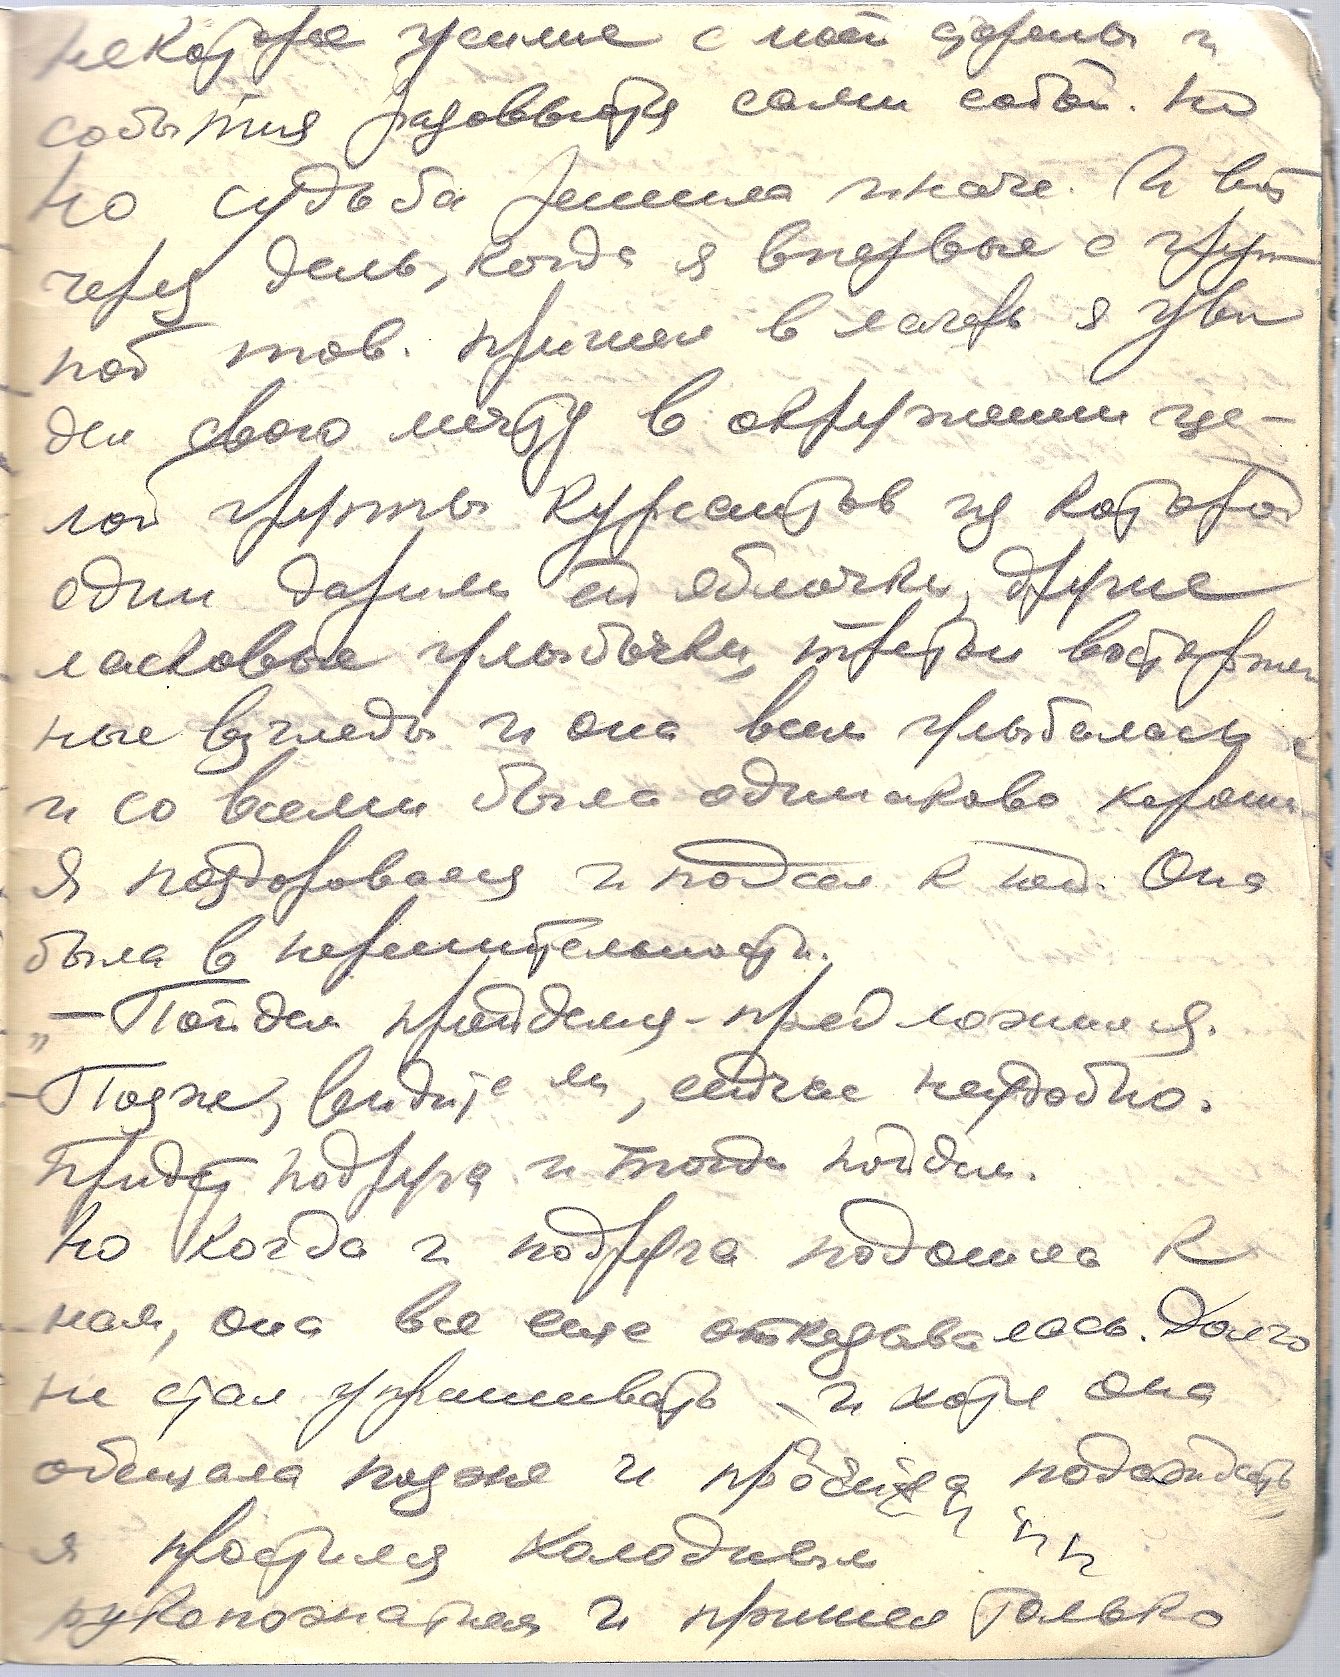 некоторое усилие с моей стороны и
события разовьются сами собой. Но
Но судьба решила иначе. И вот
через день, когда я впервые с груп
пой тов. пришел в лагерь я уви
дел свою мечту в окружении це-
лой группы курсантов из которой
одни дарили ей яблочки, другие
ласковые улыбочки, третьи восторжен
ные взгляды и она всем улыбалась
и со всеми была одинаково хороша
Я поздоровался и подсел к ней. Она
была в нерешительности.
„— Пойдем пройдемся - предложил я.
— Позже, видите ли, сейчас неудобно.
Придет подруга и тогда пойдем.
Но когда и подруга подошла к
нам, она все еще отказывалась. Долго
не стал упрашивать и хотя она
обещала позже и просила подождать
я простился холодным
рукопожатием и пришел только